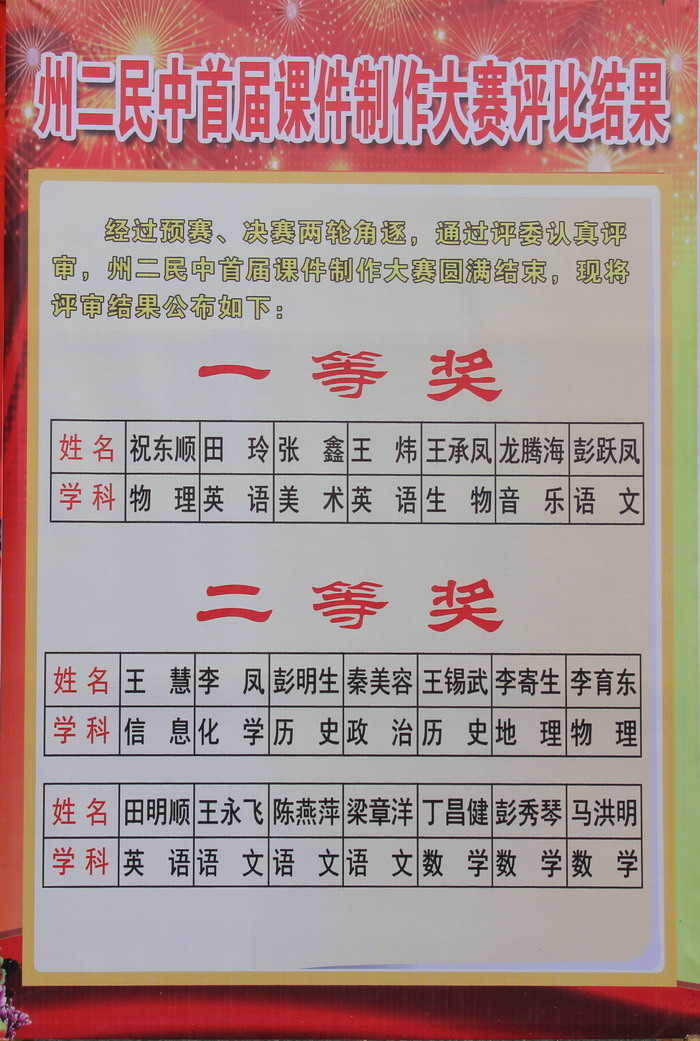 州二民中首届课件制作大赛评比结果
经过预赛、决赛两轮角逐，通过评委认真评
审，州二民中首届课件制作大赛圆满结束，现将
评审结果公布如下：
一等奖
姓名 祝东顺 田玲 张鑫 王炜 王承凤 龙腾海 彭跃凤
学科 物理 英语 美术 英语 生物 音乐 语文
二等奖
姓名 王慧 李凤 彭明生 秦美容 王锡武 李寄生 李育东
学科 信息 化学 历史 政治 历史 地理 物理
姓名 田明顺 王永飞 陈燕萍 梁章洋 丁昌健 彭秀琴 马洪明
学科 英语 语文 语文 语文 数学 数学 数学